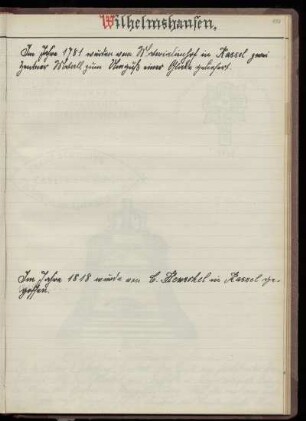 Wilhelmshausen.
Im Jahre 1781 wurden von in Kassel zwei
Zentner Metall zum Umguß einer Glocke geliefert.
Im Jahre 1818 wurde von C. Henschel in Kassel ge-
gossen.